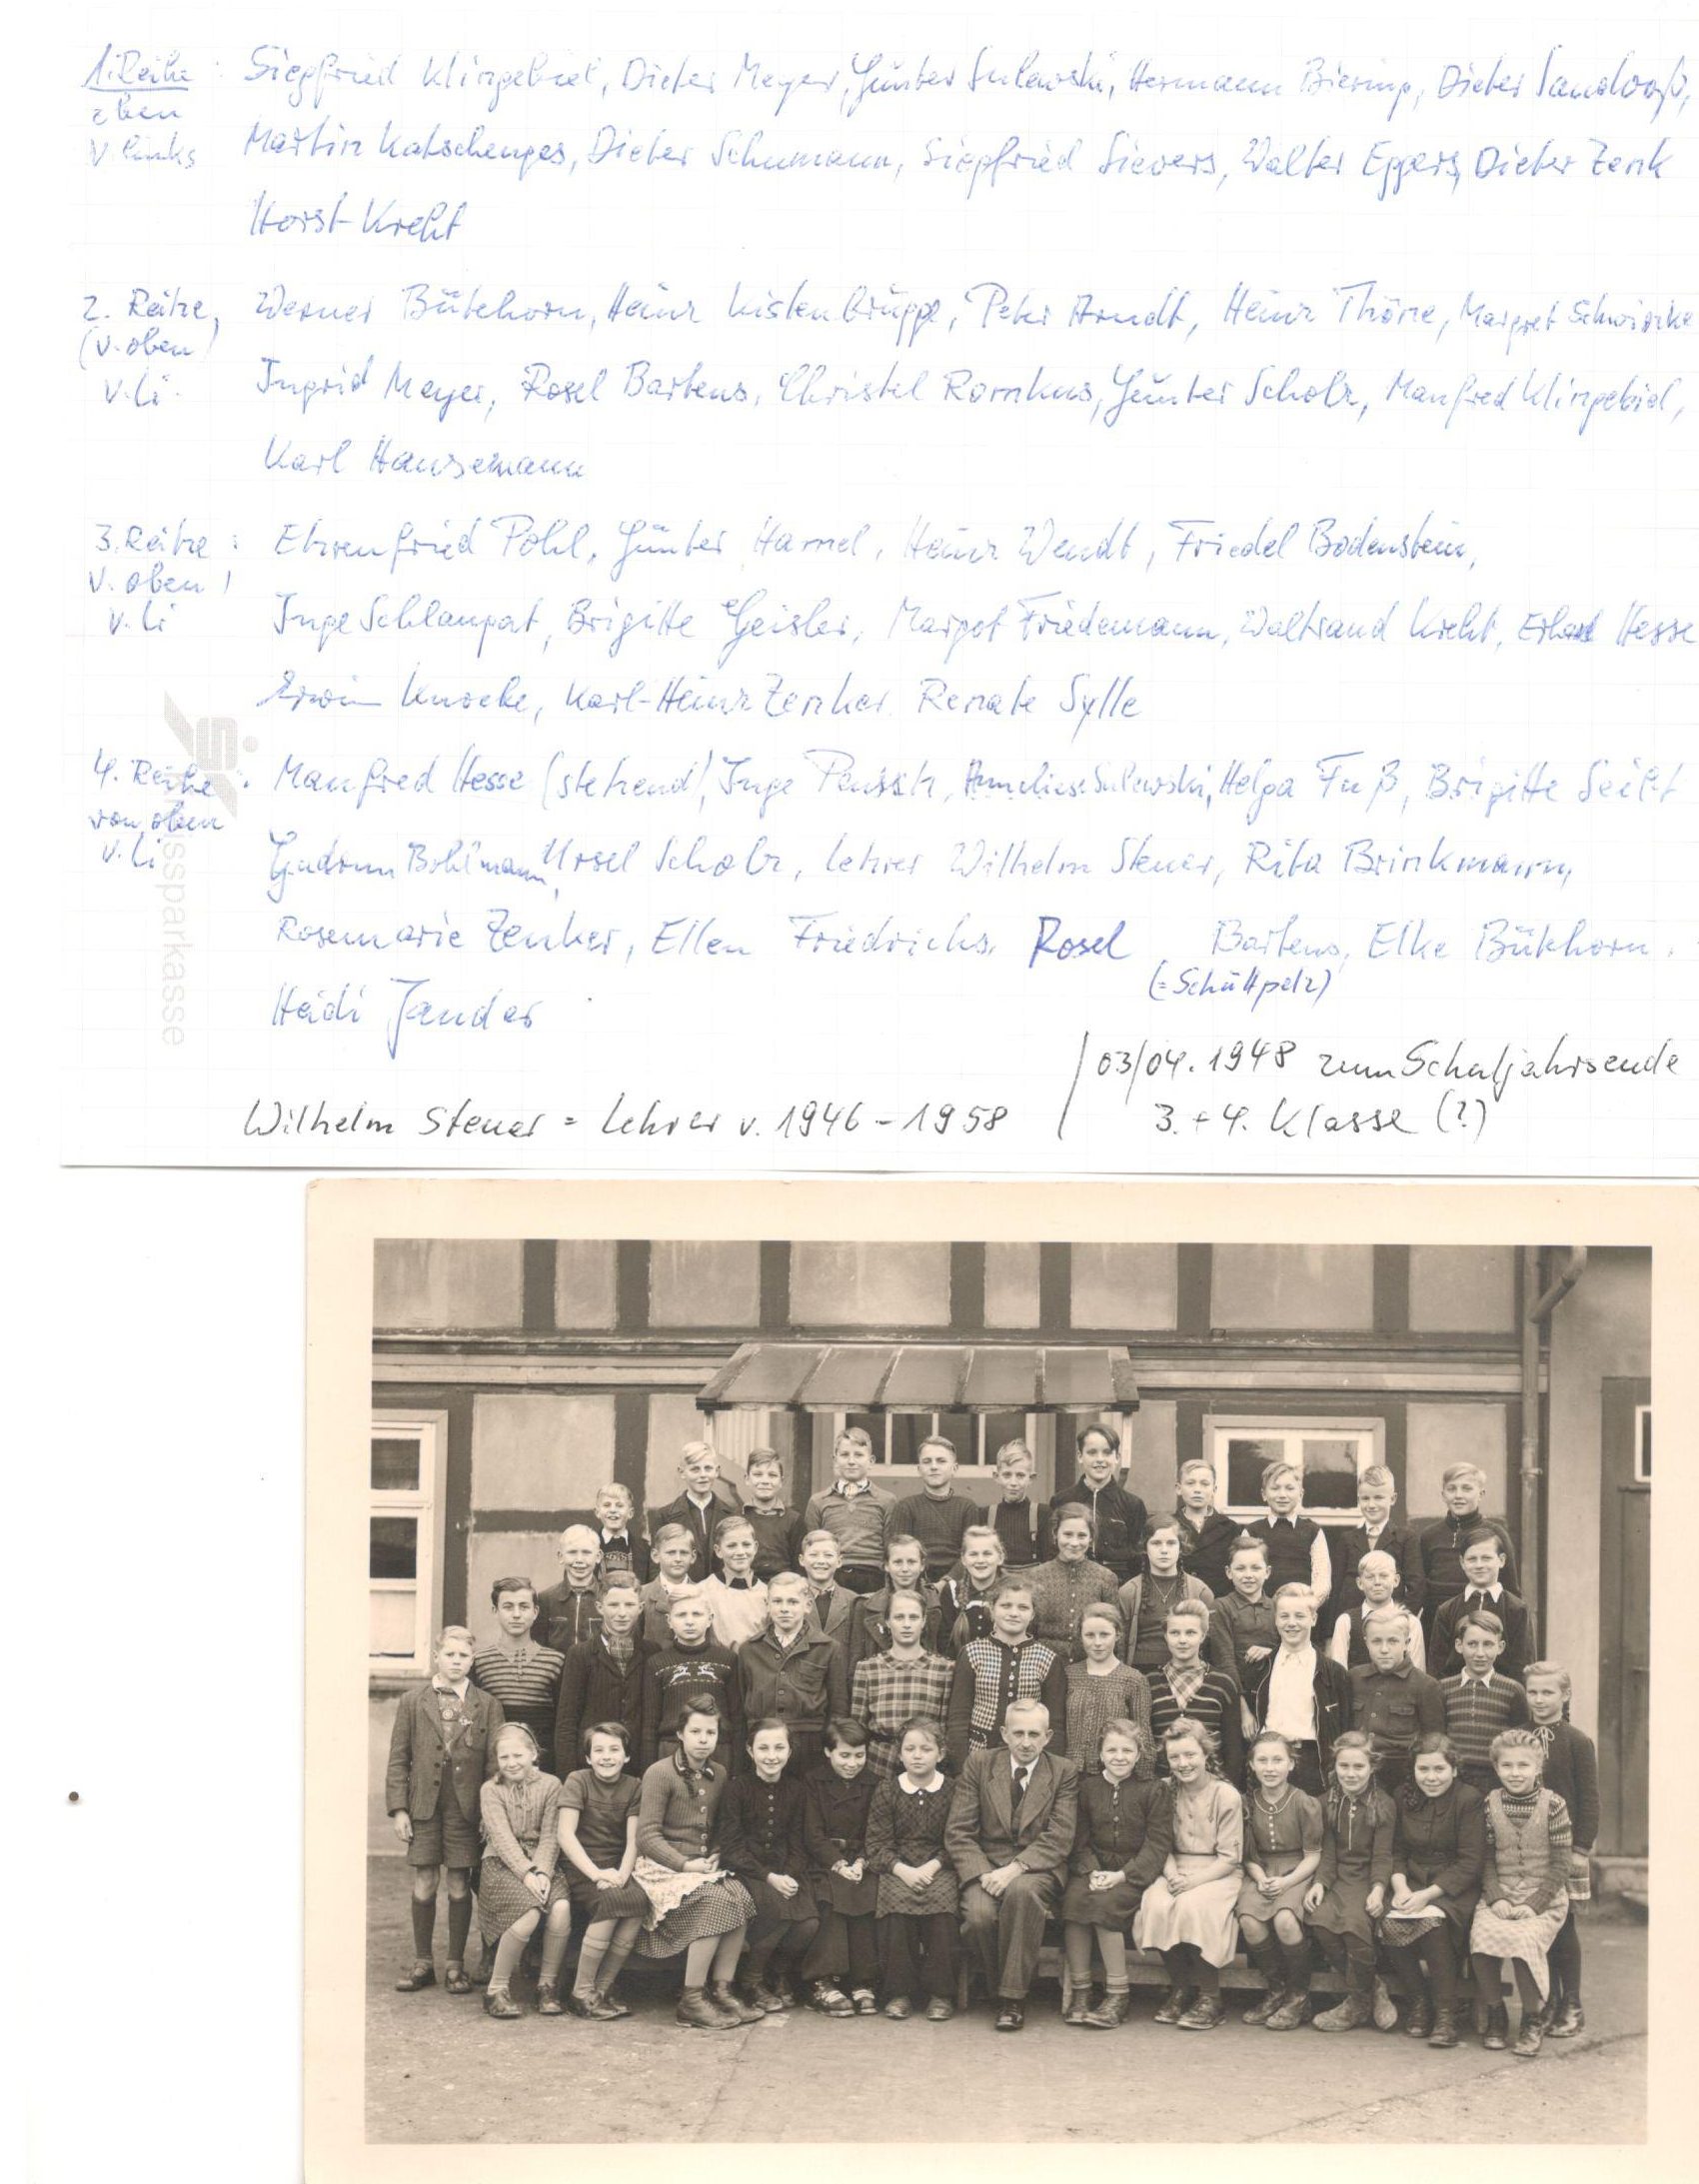 1. Reihe : Siegfried Klingebiel, Dieter Meyer, Günter Sulewski, Hermann Biering, Dieter Sandvoß,
oben
v. links Martin Katschenges, Dieter Schumann, Siegfried Sievers, Walter Eggers, Dieter Zenk
Horst Kreht
2. Reihe, Werner Bütehorn, Heinz Kistenbrügge, Peter Arndt, Heinz Thöne, Margret Schwinke
(v. oben)
v. li. Ingrid Meyer, Rosel Bartens, Christel Romkus, Günter Scholz, Manfred Klingebiel,
Karl Hansemann
3. Reihe : Ehrenfried Pohl, Günter Hamel, Heinz Wendt, Friedel Bodenstein,
v. oben!
v. li Inge Schlaupat, Brigitte Geisler, Margot Friedemann, Waltraud Kreht, Erhard Hesse
Erwin Knocke, Karl-Heinz Zenker Renate Sylle
4. Reihe : Manfred Hesse (stehend), Inge Annelies Sulewski, Helga Fuß, Brigitte Seibt
von oben
v. li Gudrun Bohlmann, Ursel Scholz, Lehrer Wilhelm Steuer, Rita Brinkmann,
Rosemarie Zenker, Ellen Friedrichs, Rosel Bartens, Elke Bütehorn.
(=Schüttpelz)
Heidi Jander
03/04.1948 zum Schuljahrsende
Wilhelm Steuer = Lehrer v. 1946-1958 / 3.+4. Klasse (?)
Kreissparkasse